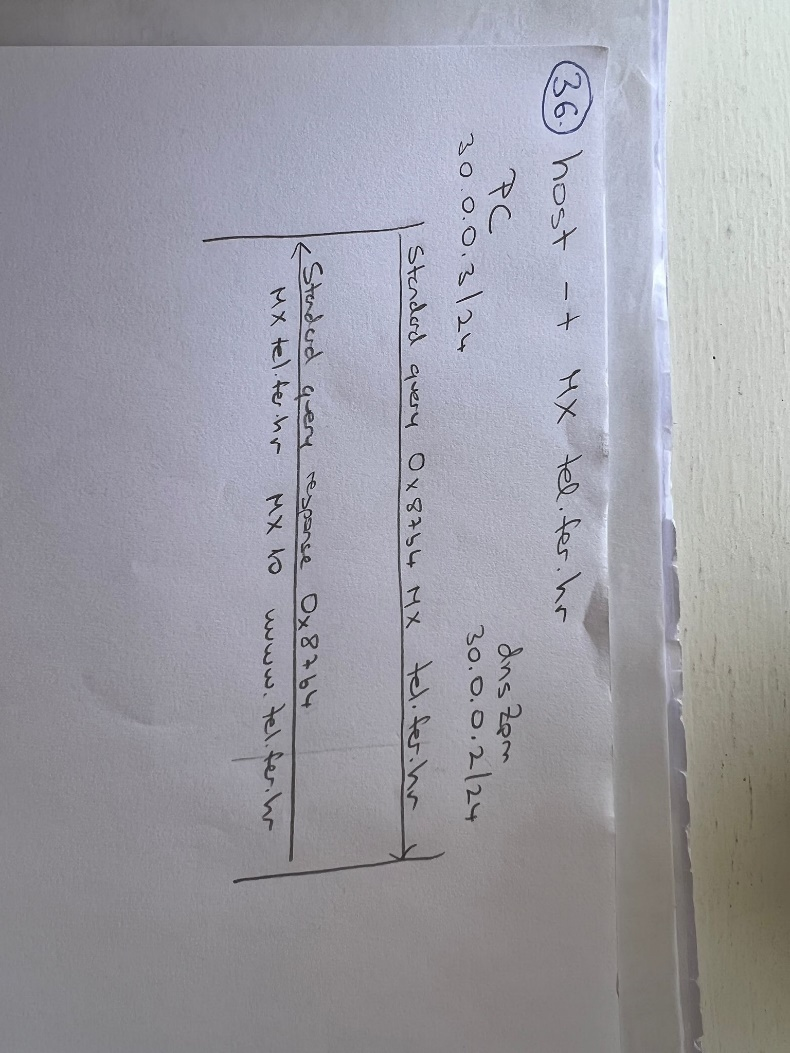 36. host -t MX tel.fer.hr
PC
30.0.0.3/24
dnsZpm
30.0.0.2/24
Standard query 0x8764 MX tel.fer.hr
Standard query response 0x8764
MX tel.fer.hr MX 10 www.tel.fer.hr